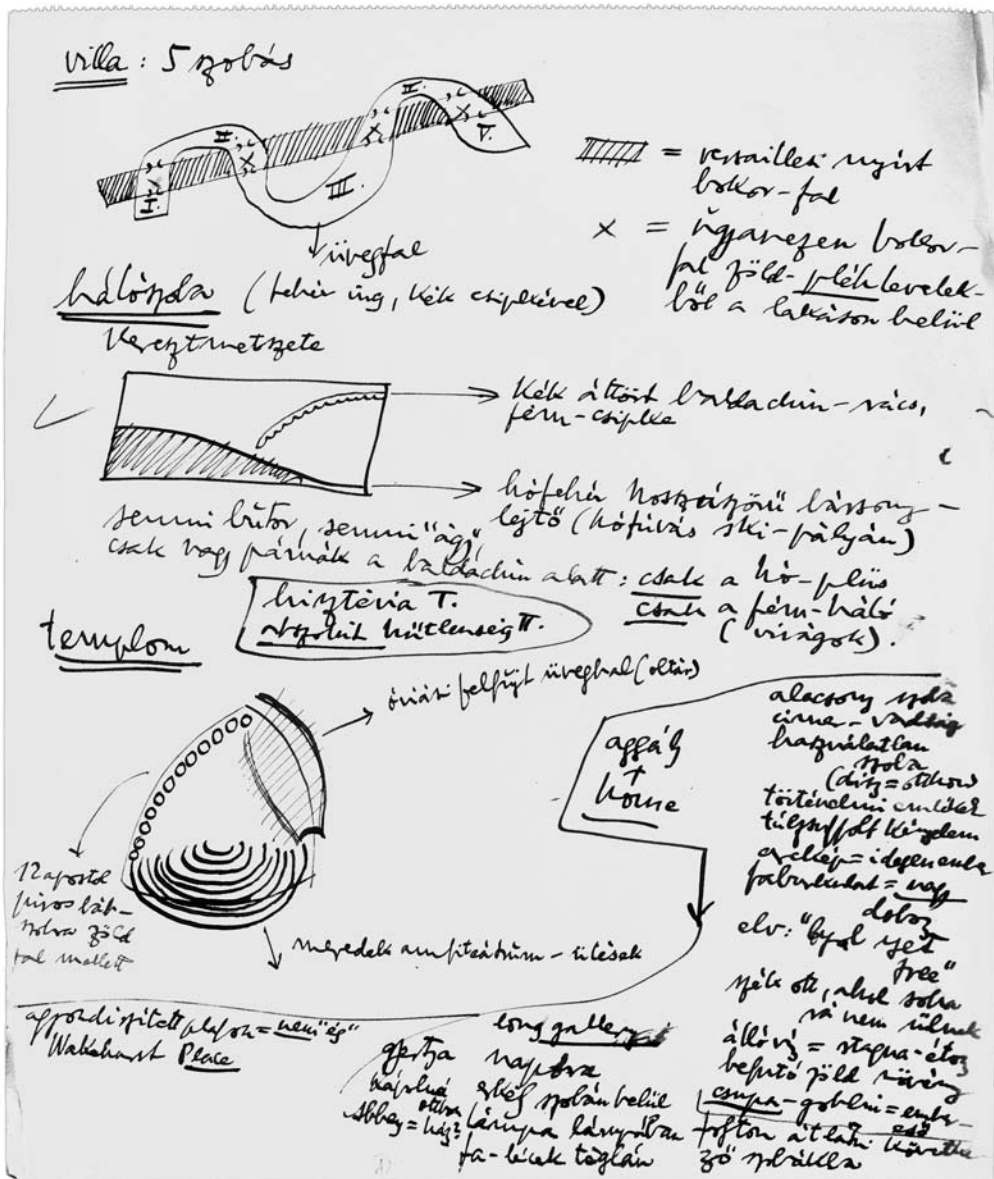 villa : 5 szobás
I. II. III. II. V.
= versaillesi nyirt
bokor-fal
x = ugyanezen bokor-
fal zöld-pléh levelek-
ből a lakáson belül
üvegfal
hálószoba (fehér ing, kék csipkével)
keresztmetszete
kék áttört baldachin-rács,
fém-csipke
hófehér hosszúszőrű bársony-
lejtő (hófúvás ski-pályán)
semmi bútor, semmi "ágy"
csak nagy párnák a baldachin alatt : csak a hó-plüs
csak a fém-háló
(virágok).
hisztéria T.
abszolút hűtlenség T.
templom
óriási felfújt üveghal (oltár)
12 apostol
piros
zöld
fal mellett
meredek amfiteátrum - ülések
aggály
+
home
alacsony szoba
használatlan
szoba
(dísz = otthon
történelmi emlékek
túlzsúfolt
arckép = idegen
faburkolat = nagy
doboz
elv: "
free"
szék ott, ahol soha
rá nem ülnek
állóvíz = stagna-étos
befutó zöld növény
csupa-goblin = ember-
eső
folyton átlátni követke
ző szobákba
agyondíszített plafon = nem "ég"
Wakehurst Place
long gallery
gyertya
kápolna
abbey = ház?
erkély szobán belül
lámpa lámpában
fa-lécek téglán